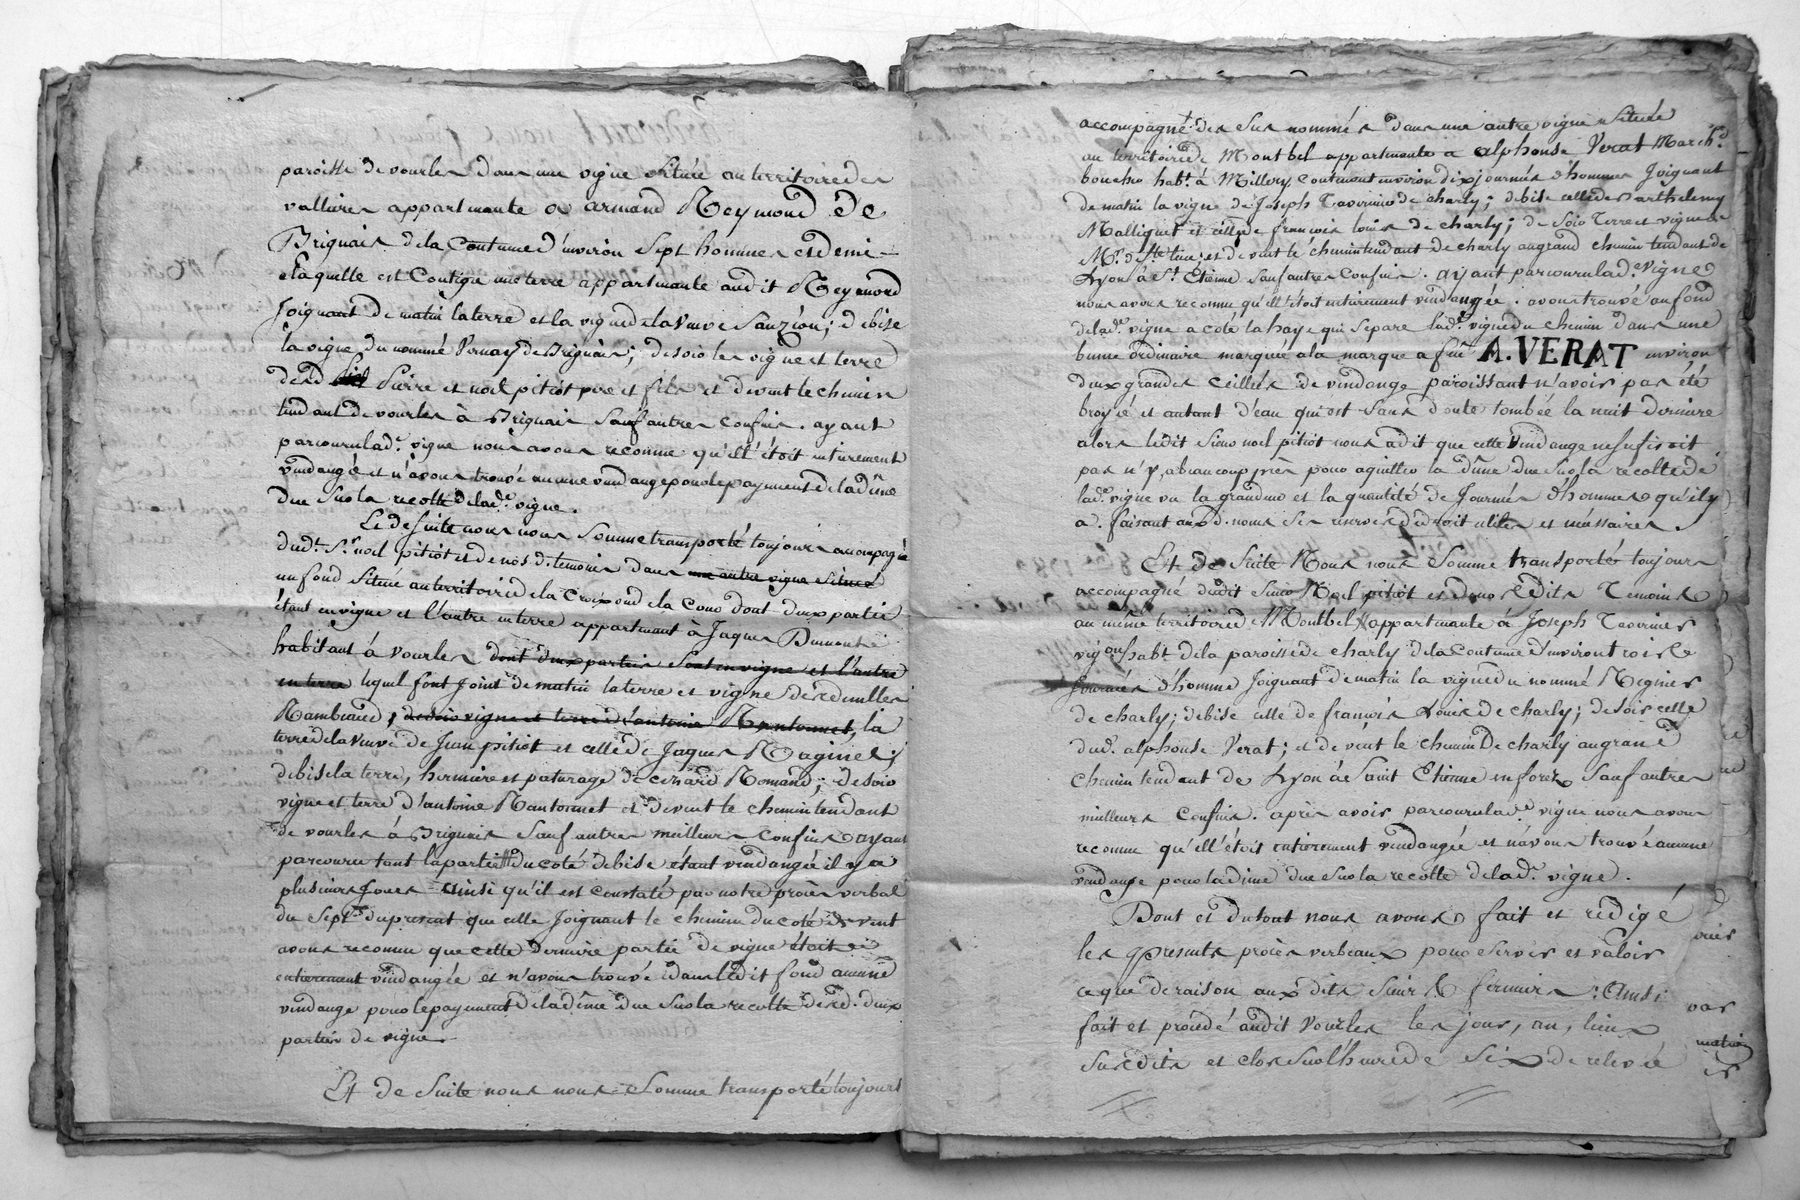 paroisse de vourles dans une vigne située au territoire des
vallieres appartenante a armand Reymond de
Brignais de la Contenue d'environ sept hommes et demi
a laquelle est Contigu une terre appartenante audit Reymond
Joignant de matin la terre et la vigne de la veuve Sanzion; de bise
la vigne du nommé Vernay de Brignais; de soir les vigne et terre
desd Pierre et noel pitiot pere et fils et de vent le chemin
tendant de vourles à Brignais sauf autres confins. ayant
parcouru lad.e vigne nous avons reconnu qu'ell' étoit entierement
vendangée et n'avons trouvé aucune vendange pour le payement de la dîme
due sur la recolte de lad.e vigne.
Et de suite nous nous somme transporté toujours accompagné
dudt. Sr. noel pitiot et de nos d. temoins dans une autre vigne située
un fond située au territoire de la Croix ou de la Cour dont deux partie
étant en vigne et l'autre en terre appartenant à Jaques Dumont
habitant à vourles dont deux parties sont en vigne et l'autre
en terre lequel font joint de matin la terre et vigne des
Rambaud, de soir vigne et terre d'antoine Mantonnet, la
terre de la veuve de Jean pitiot et celle de Jaques Maginel;
de bise la terre, hermiere et paturage de cezard Romand; de soir
vigne et terre d'antoine Mantonnet et de vent le chemin tendant
de vourles à Brignais sauf autres meilleurs confins ayant
parcouru tant la partie du coté de bise étant vendangée il y a
plusieurs jours ainsi qu'il est constaté par notre procès verbal
du sept du present que celle joignant le chemin du coté de vent
avons reconnu que cette derniere partie de vigne était
entierement vendangée et n'avons trouvé dans ledit fond aucune
vendange pour le payement de la dîme due sur la recolte desd. deux
parties de vigne
Et de suite nous nous somme transporté toujours
accompagné des sus nommés dans une autre vigne située
au territoire de Montbel appartenante a alphonse Verat March.d
boucher habt. à Millery, contenant environ dix journés d'hommes Joignant
de matin la vigne de Joseph Tavernier de charly; de bise celle de Barthelemy
Malliguet et celle de françois louis de charly; de soir Terre et vigne de
Mr. de ste luce; et de vent le chemin tendant de charly au grand chemin tendant de
Lyon à St. Etienne sauf autres Confins. ayant parcouru lad.e Vigne
nous avons reconnu qu'ell' étoit entierement vendangée. avons trouvé au fond
de lad.e vigne a coté la haye qui separe lad.e vigne du chemin dans une
benne ordinaire marquée a la marque a feu A. VERAT environ
deux grandes ceillés de vendange paroissant n'avoir pas été
broyée et autant d'eau qui est sans doute tombée la nuit derniere
alors ledit sieur noel pitiot nous a dit que cette vendange ne sufisoit
pas n'y, a beaucoup près pour aquitter la dîme due sur la recolte de
lad.e vigne vu la grandeur et la quantité de Journés d'hommes qu'il y
a. faisant auxd. noms ses reserves de droit utiles et nécessaires.
Et de suite Nous nous somme transporté toujours
accompagné dudit sieur Noel pitiot et de nos dits Temoins
au même territoire de Montbel appartenante à Joseph Tavernier
vigon habt. de la paroisse de charly de la contenue d'environ trois
journées d'homme joignant de matin la vigne du nommé Regnier
de charly; de bise celle de françois Louis de charly; de soir celle
dud. alphonse Verat; et de vent le chemin de charly au grand
chemin tendant de Lyon à Saint Etienne en forez sauf autres
meilleurs confins. après avoir parcouru lad.e vigne nous avons
reconnu qu'ell' étoit entierement vendangée et n'avons trouvé aucune
vendange pour la dime due sur la recolte de lad.e vigne.
Dont et du tout nous avons fait et redigé
les presents procès verbeaux pour servir et valoir
ce que de raison aux dits sieurs fermiers. Ainsi
fait et procédé audit Vourles les jour, an, lieux
susdits et clos sur l'heure de six de relevée